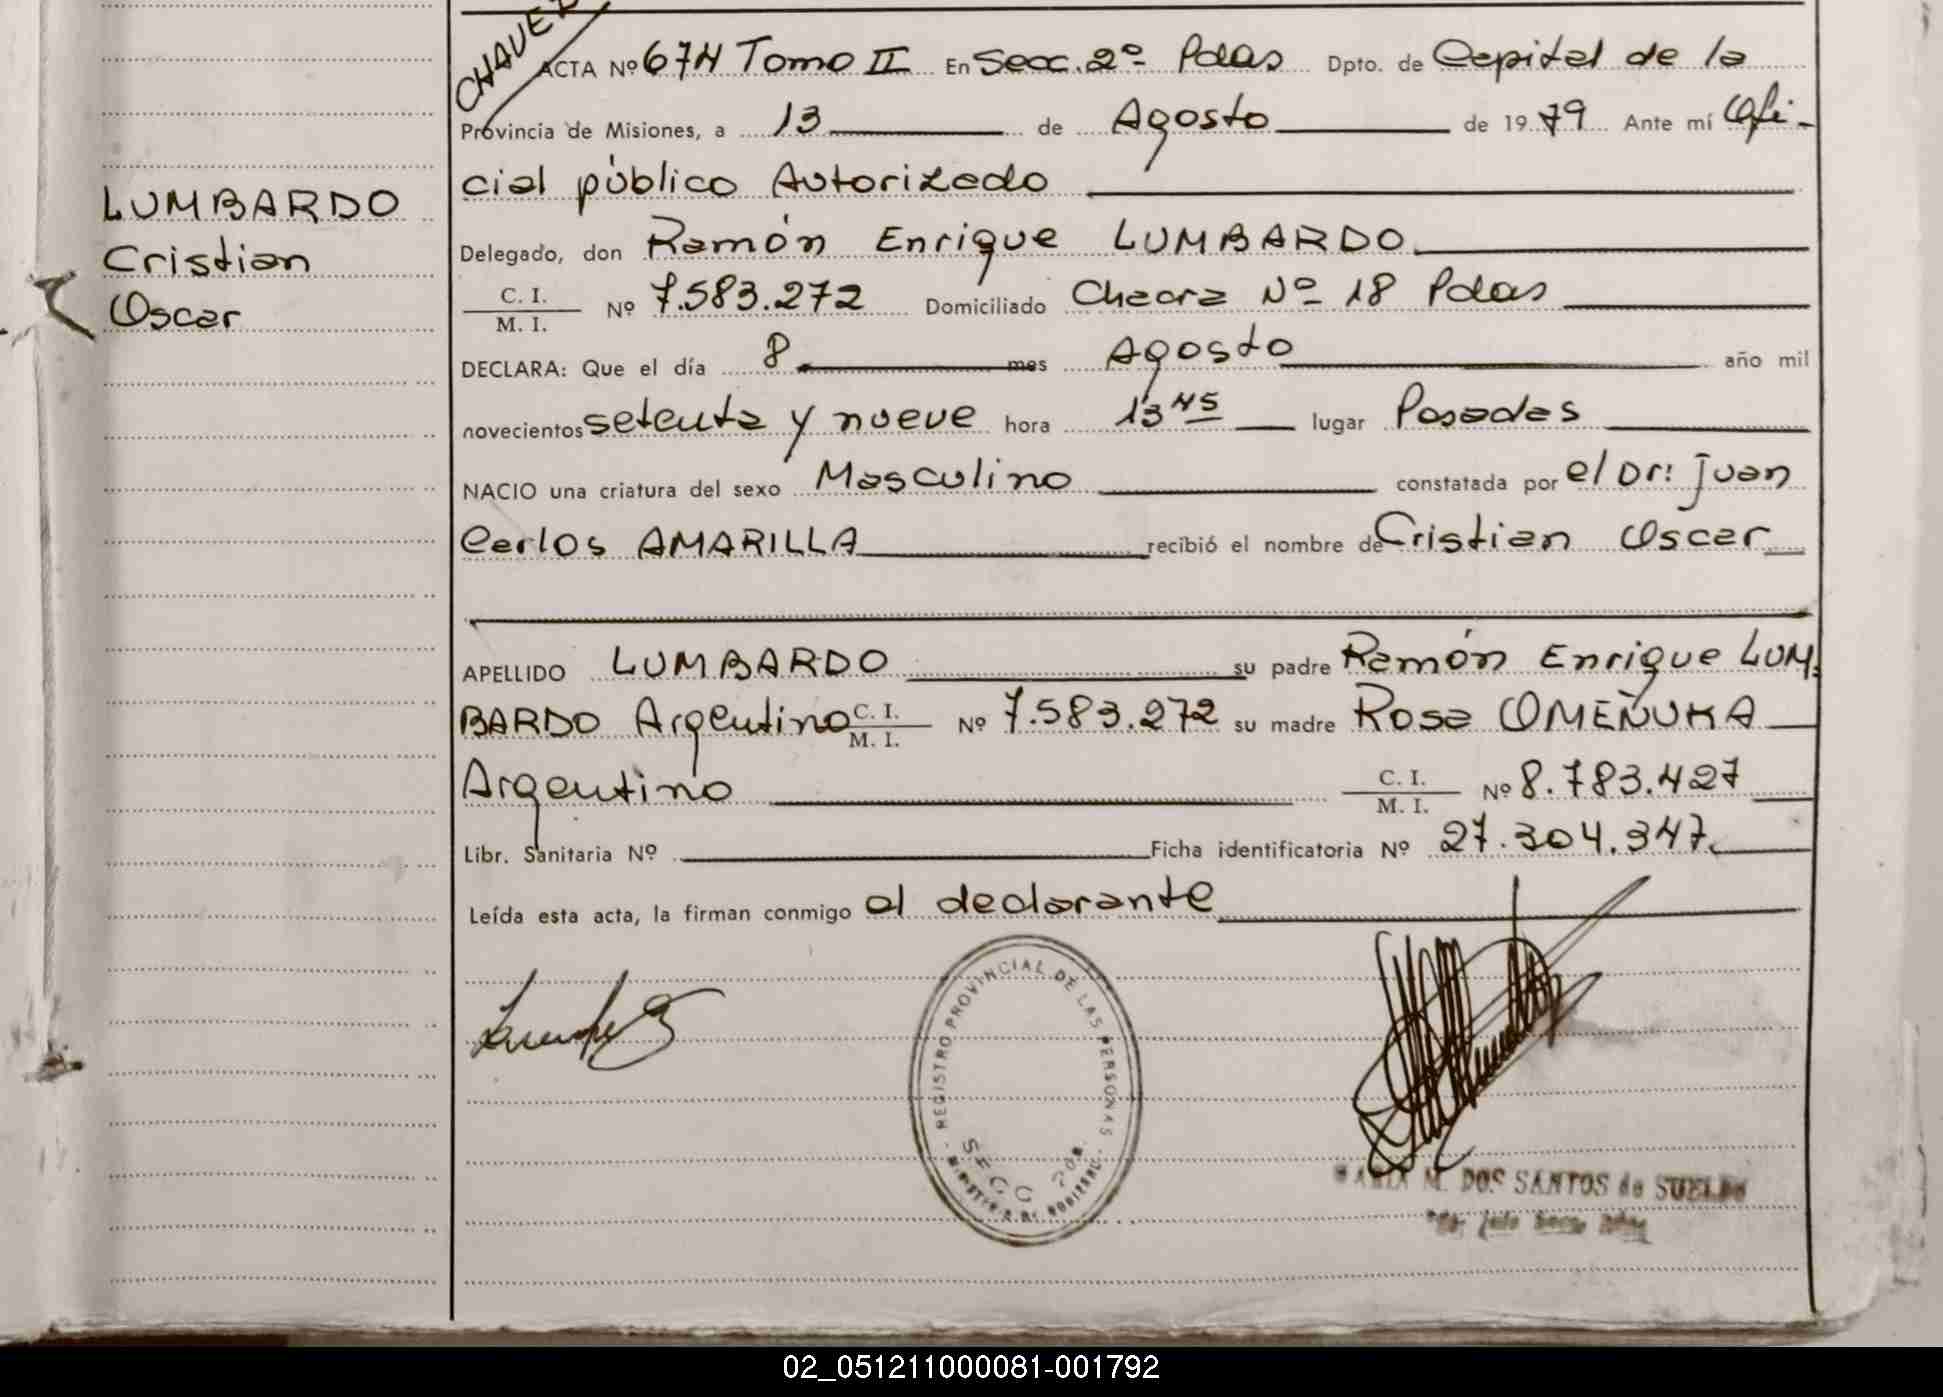 CHAVE
ACTA Nº 674 Tomo II En Secc. 2º Pdas Dpto. de Capital de la
Provincia de Misiones, a 13 de Agosto de 1979 Ante mí Ofi-
cial público Autorizado
LUMBARDO
Cristian
Oscar
Delegado, don Ramón Enrique LUMBARDO
C. I.
M. I. Nº 7.583.272 Domiciliado Chacra Nº 18 Pdas
DECLARA: Que el día 8 mes Agosto año mil
novecientos setenta y nueve hora 13 45 lugar Posadas
NACIO una criatura del sexo Masculino constatada por el Dr: Juan
Carlos AMARILLA recibió el nombre de Cristian Oscar
APELLIDO LUMBARDO su padre Ramón Enrique LUM-
BARDO Argentino C. I. M. I. Nº 7.583.272 su madre Rosa OMEÑUKA
Argentino C. I. M. I. Nº 8.783.427
Libr. Sanitaria Nº Ficha identificatoria Nº 27.304.347
Leída esta acta, la firman conmigo el declarante
REGISTRO PROVINCIAL DE LAS PERSONAS
SECC
M. DOS SANTOS de SUELDO
02_051211000081-001792